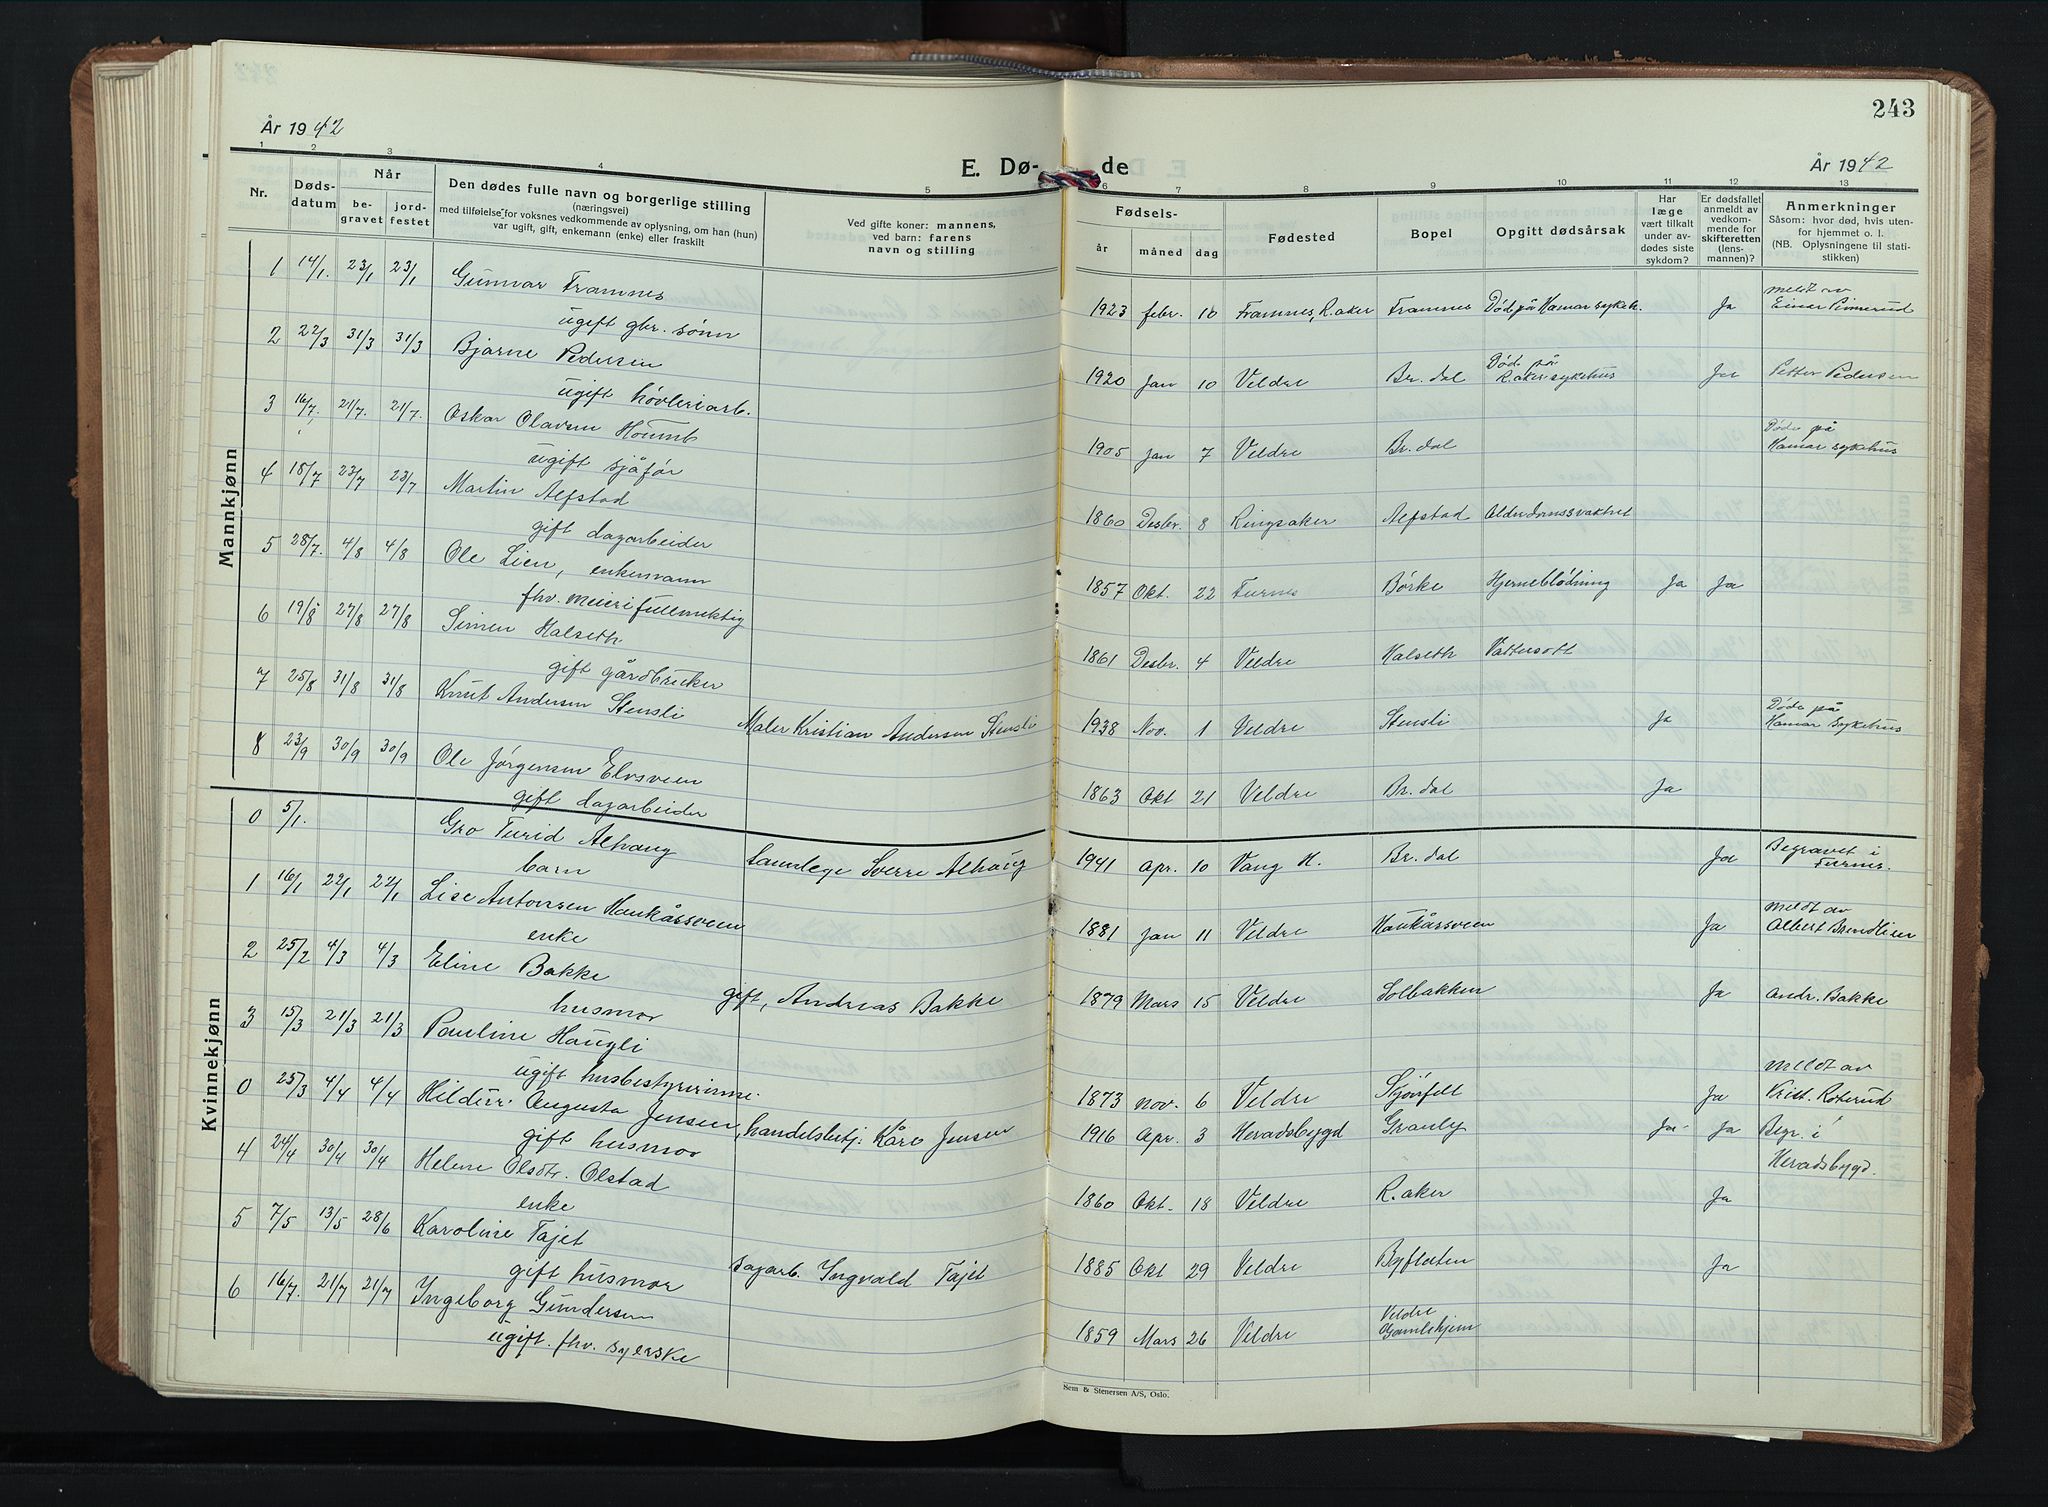 243
År 1942
E. Dø-
de
År 1942
1 2 3 4 5 6 7 8 9 10 11 12 13
Nr.
Døds-
datum
Når
be-
gravet
jord-
festet
Den dødes fulle navn og borgerlige stilling
(næringsvei)
med tilføielse for voksnes vedkommende av oplysning, om han (hun)
var ugift, gift, enkemann (enke) eller fraskilt
Ved gifte koner: mannens,
ved barn: farens
navn og stilling
Fødsels-
år
måned
dag
Fødested
Bopel
Opgitt dødsårsak
Har
læge
vært tilkalt
under av-
dødes siste
sykdom?
Er dødsfallet
anmeldt av
vedkom-
mende for
skifteretten
(lens-
mannen)?
Anmerkninger
Såsom: hvor død, hvis uten-
for hjemmet o. l.
(NB. Oplysningene til stati-
stikken)
Mannkjønn
1 14/1. 23/1 23/1 Gunnar Framnes
ugift gbr. sønn
1923 febr. 10 Framnes, R.aker Framnes Død på Hamar sykeh. Ja meldt av
Einar Pinnerud
2 22/3 31/3 31/3 Bjarne Pedersen
ugift høvleriarb.
1920 Jan 10 Veldre Br. dal Døde på
R.aker sykehus Ja Petter Pedersen
3 16/7. 21/7. 21/7. Oskar Olavsen
ugift sjåfør
1905 Jan 7 Veldre Br. dal Døde på
Hamar sykehus
4 18/7 23/7 23/7 Martin Alfstad
gift dagarbeider
1860 Desbr. 8 Ringsaker Alfstad
5 28/7. 4/8 4/8 Ole Lien, enkemann
fhv. meierifullmektig
1857 Okt. 22 Furnes Børke Hjerneblødning Ja Ja
6 19/8 27/8 27/8 Simen Halseth
gift gårdbruker
1861 Desbr. 4 Veldre Halseth Vattersott
7 25/8 31/8 31/8 Knut Andersen Stensli Maler Kristian Andersen Stensli
1938 Nov. 1 Veldre Stensli Ja Døde på
Hamar sykehus
8 23/9 30/9 30/9 Ole Jørgensen Elvsveen
gift dagarbeider
1863 Okt 21 Veldre Br. dal Ja
Kvinnekjønn
0 5/1. Gro Turid Alhaug
barn
Tannlege Sverre Alhaug
1941 Apr. 10 Vang H. Br. dal Ja Begravet i
Furnes.
1 16/1 22/1 22/1 Lise Antonsen Haukåssveen
enke
1881 Jan 11 Veldre Haukåssveen Ja meldt av
Albert
2 25/2 4/3 4/3 Eline Bakke
husmor
gift, Andreas Bakke
1879 Mars 15 Veldre Solbakken Ja Andr. Bakke
3 15/3 21/3 21/3 Pauline Haugli
ugift husbestyrerinne.
1873 Nov. 6 Veldre Ja meldt av
Krist. Roterud
0 25/3 4/4 4/4 Hildur Augusta Jensen, handelsbetj. Kåre Jensen
gift husmor
1916 Apr. 3 Heradsbygd Granly Ja Ja Begr. i
Heradsbygd.
4 24/4 30/4 30/4 Helene Olsdtr. Olstad
enke
1860 Okt. 18 Veldre R.aker Ja
5 7/5 13/5 28/6 Karoline Tajet
gift husmor
sagarb. Ingvald Tajet
1885 Okt 29 Veldre Byflaten Ja
6 16/7. 21/7 21/7 Ingeborg Gundersen
ugift. fhv. syerske
1859 Mars 26 Veldre Veldre
Gamlehjem
Sem & Stenersen A/S, Oslo.